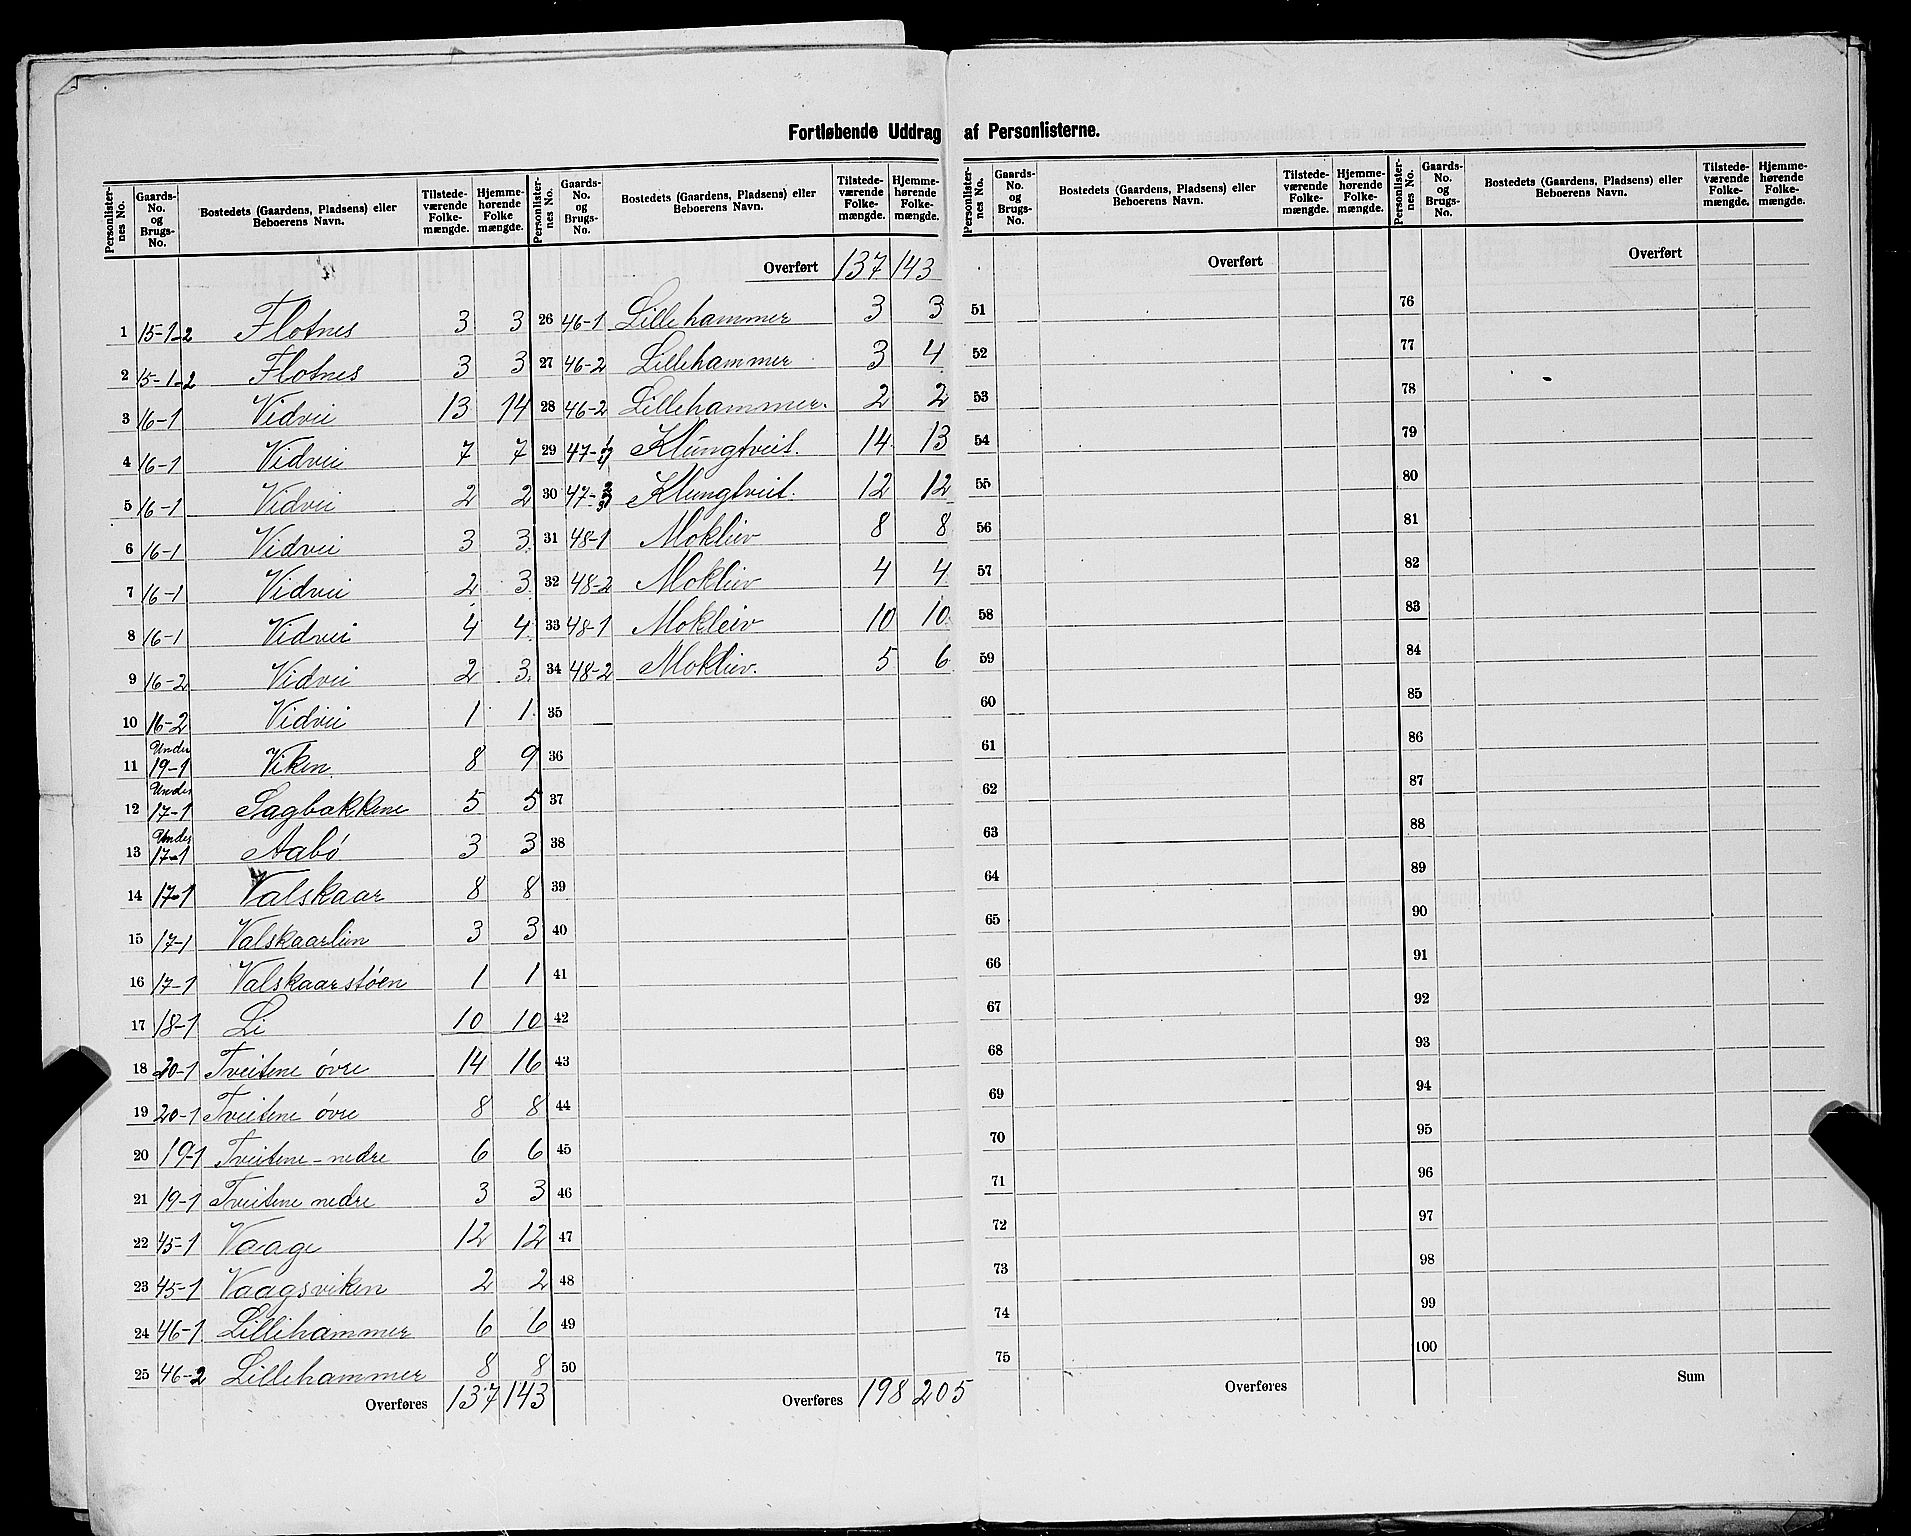 Fortløbende Uddrag af Personlisterne.
Personlister-nes No. | Gaards-No. og Brugs-No. | Bostedets (Gaardens, Pladsens) eller Beboerens Navn. | Tilstede-værende Folke-mængde. | Hjemme-hørende Folke mængde.
1 15-1-2 Flotnes 3 3
2 15-1-2 Flotnes 3 3
3 16-1 Vidvei 13 14
4 16-1 Vidvei 7 7
5 16-1 Vidvei 2 2
6 16-1 Vidvei 3 3
7 16-1 Vidvei 2 3
8 16-1 Vidvei 4 4
9 16-2 Vidvei 2 3
10 16-2 Vidvei 1 1
11 Under 19-1 Viken 8 9
12 Under 17-1 Sagbakkene 5 5
13 Under 17-1 Aabø 3 3
14 17-1 Valskaar 8 8
15 17-1 Valskaarlien 3 3
16 17-1 Valskaarstøen 1 1
17 18-1 Li 10 10
18 20-1 Tveitene øvre 14 16
19 20-1 Tveitene øvre 8 8
20 19-1 Tveitene-nedre 6 6
21 19-1 Tveitene nedre 3 3
22 45-1 Vaage 12 12
23 45-1 Vaagsviken 2 2
24 46-1 Lillehammer 6 6
25 46-2 Lillehammer 8 8
Overføres 137 143
Personlister-nes No. | Gaards-No. og Brugs-No. | Bostedets (Gaardens, Pladsens) eller Beboerens Navn. | Tilstede-værende Folke-mængde. | Hjemme-hørende Folke-mængde.
Overført 137 143
26 46-1 Lillehammer 3 3
27 46-2 Lillehammer 3 4
28 46-2 Lillehammer. 2 2
29 47- Klungtveit. 14 13
30 47- Klungtveit. 12 12
31 48-1 Mokleiv 8 8
32 48-2 Mokleiv 4 4
33 48-1 Mokleiv 10 10
34 48-2 Mokleiv. 5 6
35
36
37
38
39
40
41
42
43
44
45
46
47
48
49
50
Overføres 198 205
Personlister-nes No. | Gaards-No. og Brugs-No. | Bostedets (Gaardens, Pladsens) eller Beboerens Navn. | Tilstede-værende Folke-mængde. | Hjemme-hørende Folke-mængde.
Overført
51
52
53
54
55
56
57
58
59
60
61
62
63
64
65
66
67
68
69
70
71
72
73
74
75
Overføres
Personlister-nes No. | Gaards-No. og Brugs-No. | Bostedets (Gaardens, Pladsens) eller Beboerens Navn. | Tilstede-værende Folke-mængde. | Hjemme-hørende Folke-mængde.
Overført
76
77
78
79
80
81
82
83
84
85
86
87
88
89
90
91
92
93
94
95
96
97
98
99
100
Sum